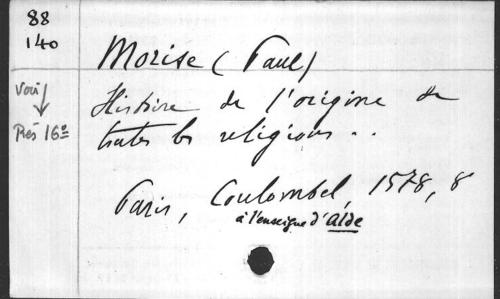 88
140
Morise (Paul)
Voir
Rés 16º
Histoire de l'origine de
toutes les religions ..
Paris, Coulombel, 1578, 8
à l'enseigne d'alde